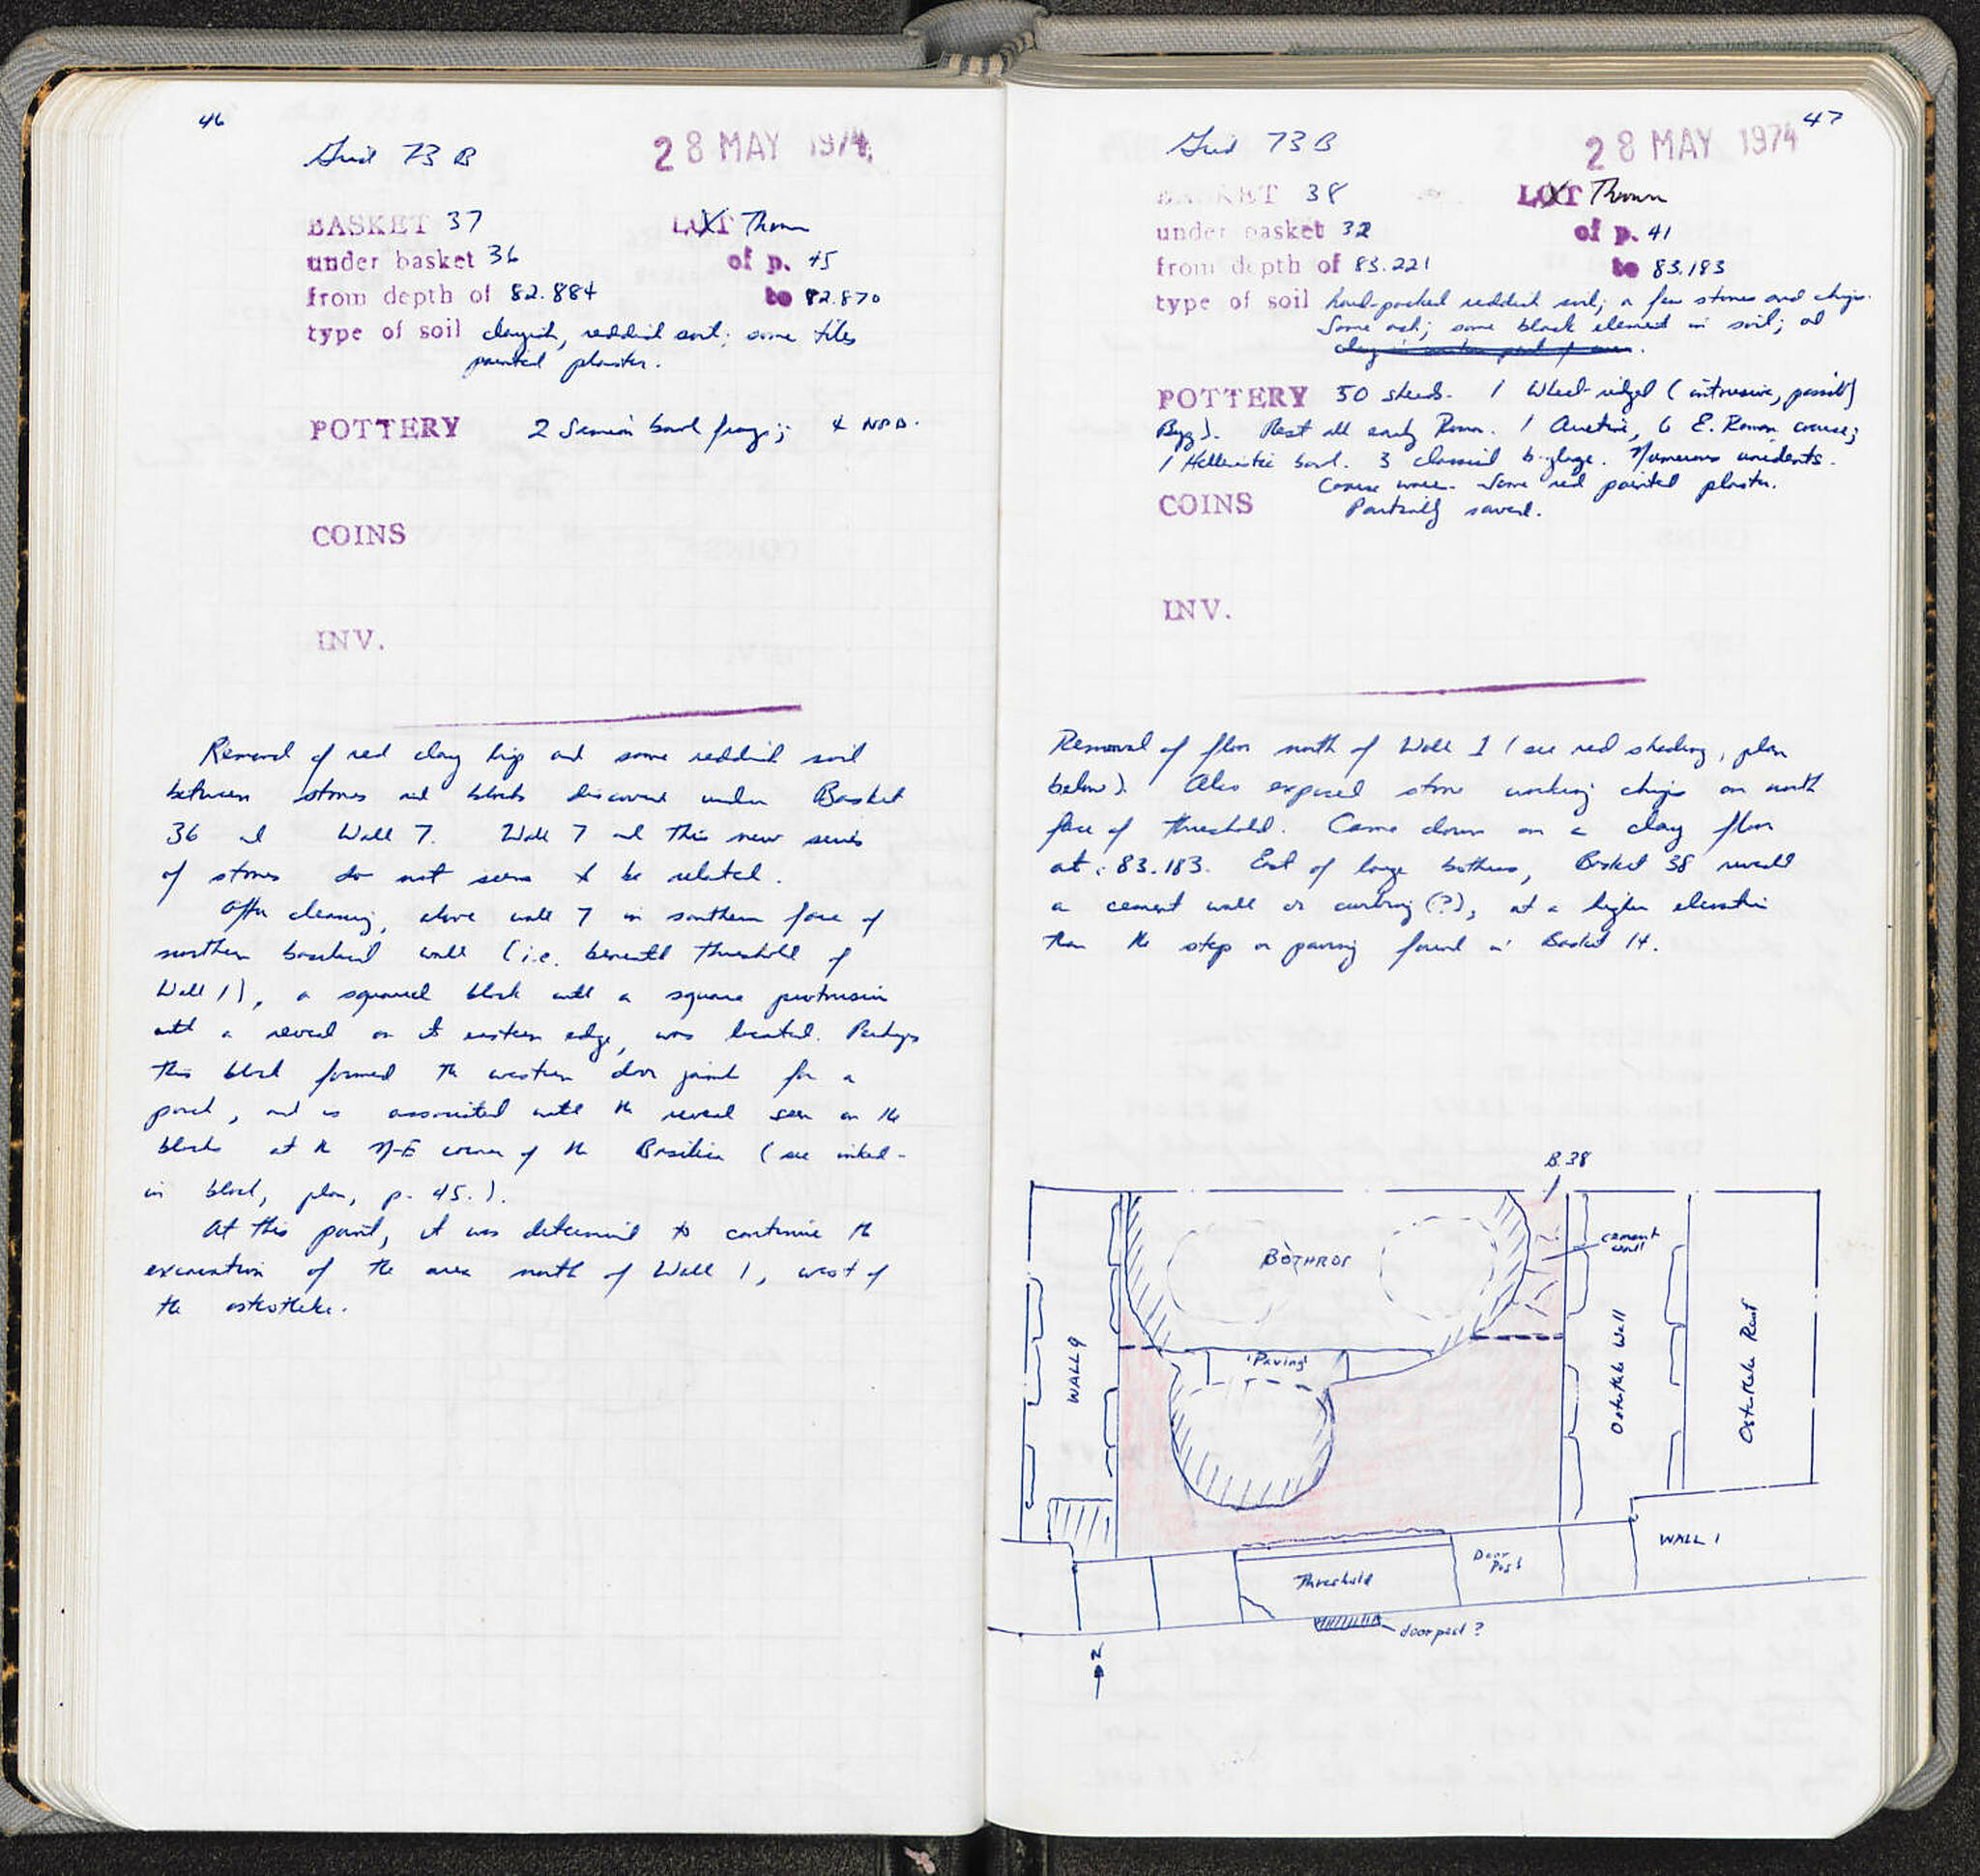 46
Grid 73 B
28 MAY 1974
BASKET 37 LOT Thrown
under basket 36 of p. 45
from depth of 82.884 to 82.870
type of soil clayish, reddish soil; some tiles
painted plaster.
POTTERY 2 Samian bowl frags; 4 NPD.
COINS
INV.
Removal of red clay and some reddish soil
between stones and blocks discovered under Basket
36 and Wall 7. Wall 7 and this new series
of stones do not seem to be related.
After cleaning, above wall 7 in southern face of
northern basilical wall (i.e. beneath threshold of
Wall 1), a squared block with a square protrusion
with a reveal on its eastern edge, was located. Perhaps
this block formed the western door jamb for a
porch, and is associated with the reveal seen on the
blocks at the N-E corner of the Basilica (see inked-
in block, plan, p. 45.).
At this point, it was determined to continue the
excavation of the area north of Wall 1, west of
the ostotheke.
47
Grid 73 B
28 MAY 1974
BASKET 38 LOT Thrown
under basket 32 of p. 41
from depth of 83.221 to 83.183
type of soil hard-packed reddish soil; a few stones and chips.
Some ash; some black element in soil; and
POTTERY 50 sherds. 1 Wheel-ridged (intrusive, possibly
Byz). Rest all early Roman. 1 Arretine, 6 E. Roman coarse;
1 Hellenistic bowl. 3 classical b-glaze. Numerous unidents.
Coarse ware. Some red painted plaster.
COINS Partially saved.
INV.
Removal of floor north of Wall 1 (see red shading, plan
below). Also exposed stone working chips on north
face of threshold. Came down on a clay floor
at: 83.183. East of large bothros, Basket 38 reveald
a cement wall or curbing (?), at a higher elevation
than the step or paving found in Basket 14.
B.38
BOTHROS
cement
wall
'Paving'
WALL 9
Ostotheke Wall
Ostotheke Revet
WALL 1
Door
Post
Threshold
door post ?
N